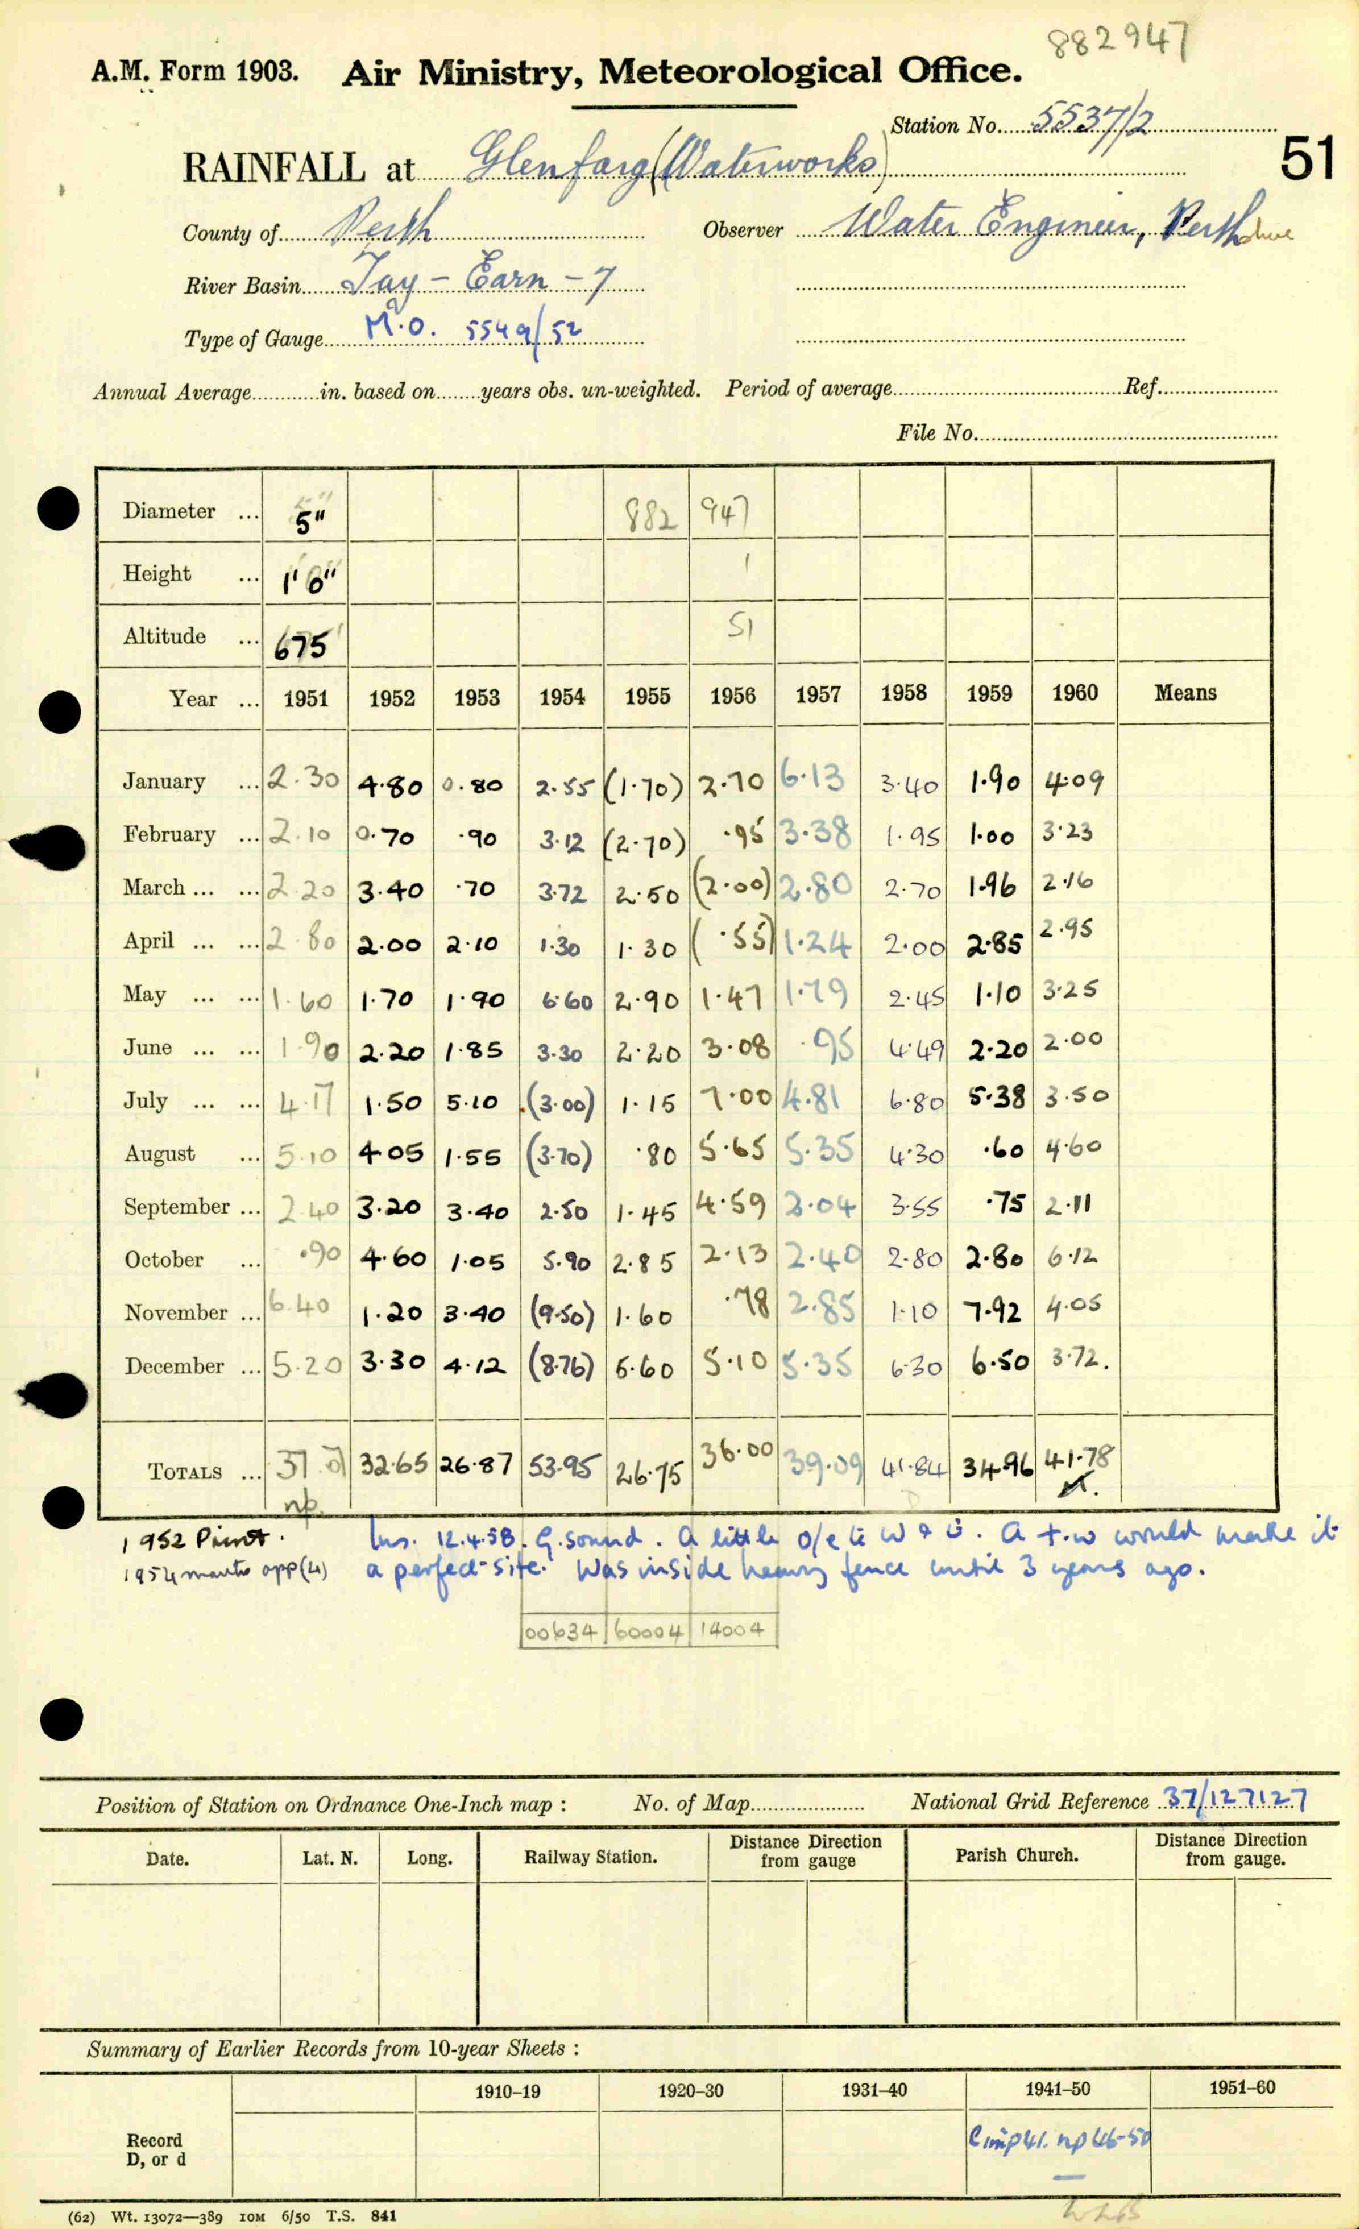 882947
A.M. Form 1903. Air Ministry, Meteorological Office.
Station No. 5537/2
RAINFALL at Glenfarg (Waterworks) 51
County of Perth Observer Water Engineer, Perthshire
River Basin Tay - Earn - 7
Type of Gauge M.O. 5549/52
Annual Average in. based on years obs. un-weighted. Period of average Ref.
File No.
Diameter ... 5" 882 947
Height ... 1'0" 1
Altitude ... 675 51
Year ... 1951 1952 1953 1954 1955 1956 1957 1958 1959 1960 Means
January ... 2.30 4.80 0.80 2.55 (1.70) 2.70 6.13 3.40 1.90 4.09
February ... 2.10 0.70 .90 3.12 (2.70) .95 3.38 1.95 1.00 3.23
March ... ... 2.20 3.40 .70 3.72 2.50 (2.00) 2.80 2.70 1.96 2.16
April ... ... 2.80 2.00 2.10 1.30 1.30 (.55) 1.24 2.00 2.85 2.95
May ... ... 1.60 1.70 1.90 6.60 2.90 1.47 1.79 2.45 1.10 3.25
June ... ... 1.90 2.20 1.85 3.30 2.20 3.08 .95 4.49 2.20 2.00
July ... ... 4.17 1.50 5.10 (3.00) 1.15 7.00 4.81 6.80 5.38 3.50
August ... 5.10 4.05 1.55 (3.70) .80 5.65 5.35 4.30 .60 4.60
September ... 2.40 3.20 3.40 2.50 1.45 4.59 2.04 3.55 .75 2.11
October ... .90 4.60 1.05 5.90 2.85 2.13 2.40 2.80 2.80 6.12
November ... 6.40 1.20 3.40 (9.50) 1.60 .78 2.85 1.10 7.92 4.05
December ... 5.20 3.30 4.12 (8.76) 5.60 5.10 5.35 6.30 6.50 3.72.
TOTALS ... 37.07 32.65 26.87 53.95 26.75 36.00 39.09 41.84 34.96 41.78
np.
1952 Print. Ins. 12.4.58. G. sound. A little o/e to W & . A t.w would make it
1954 months app (4) a perfect site. Was inside heavy fence until 3 years ago.
00634 60004 14004
Position of Station on Ordnance One-Inch map : No. of Map National Grid Reference 37/127127
Date. Lat. N. Long. Railway Station. Distance Direction from gauge Parish Church. Distance Direction from gauge.
Summary of Earlier Records from 10-year Sheets :
1910–19 1920–30 1931–40 1941–50 1951–60
Record
D, or d
Cmp 41. np 46-50
(62) Wt. 13072—389 10M 6/50 T.S. 841